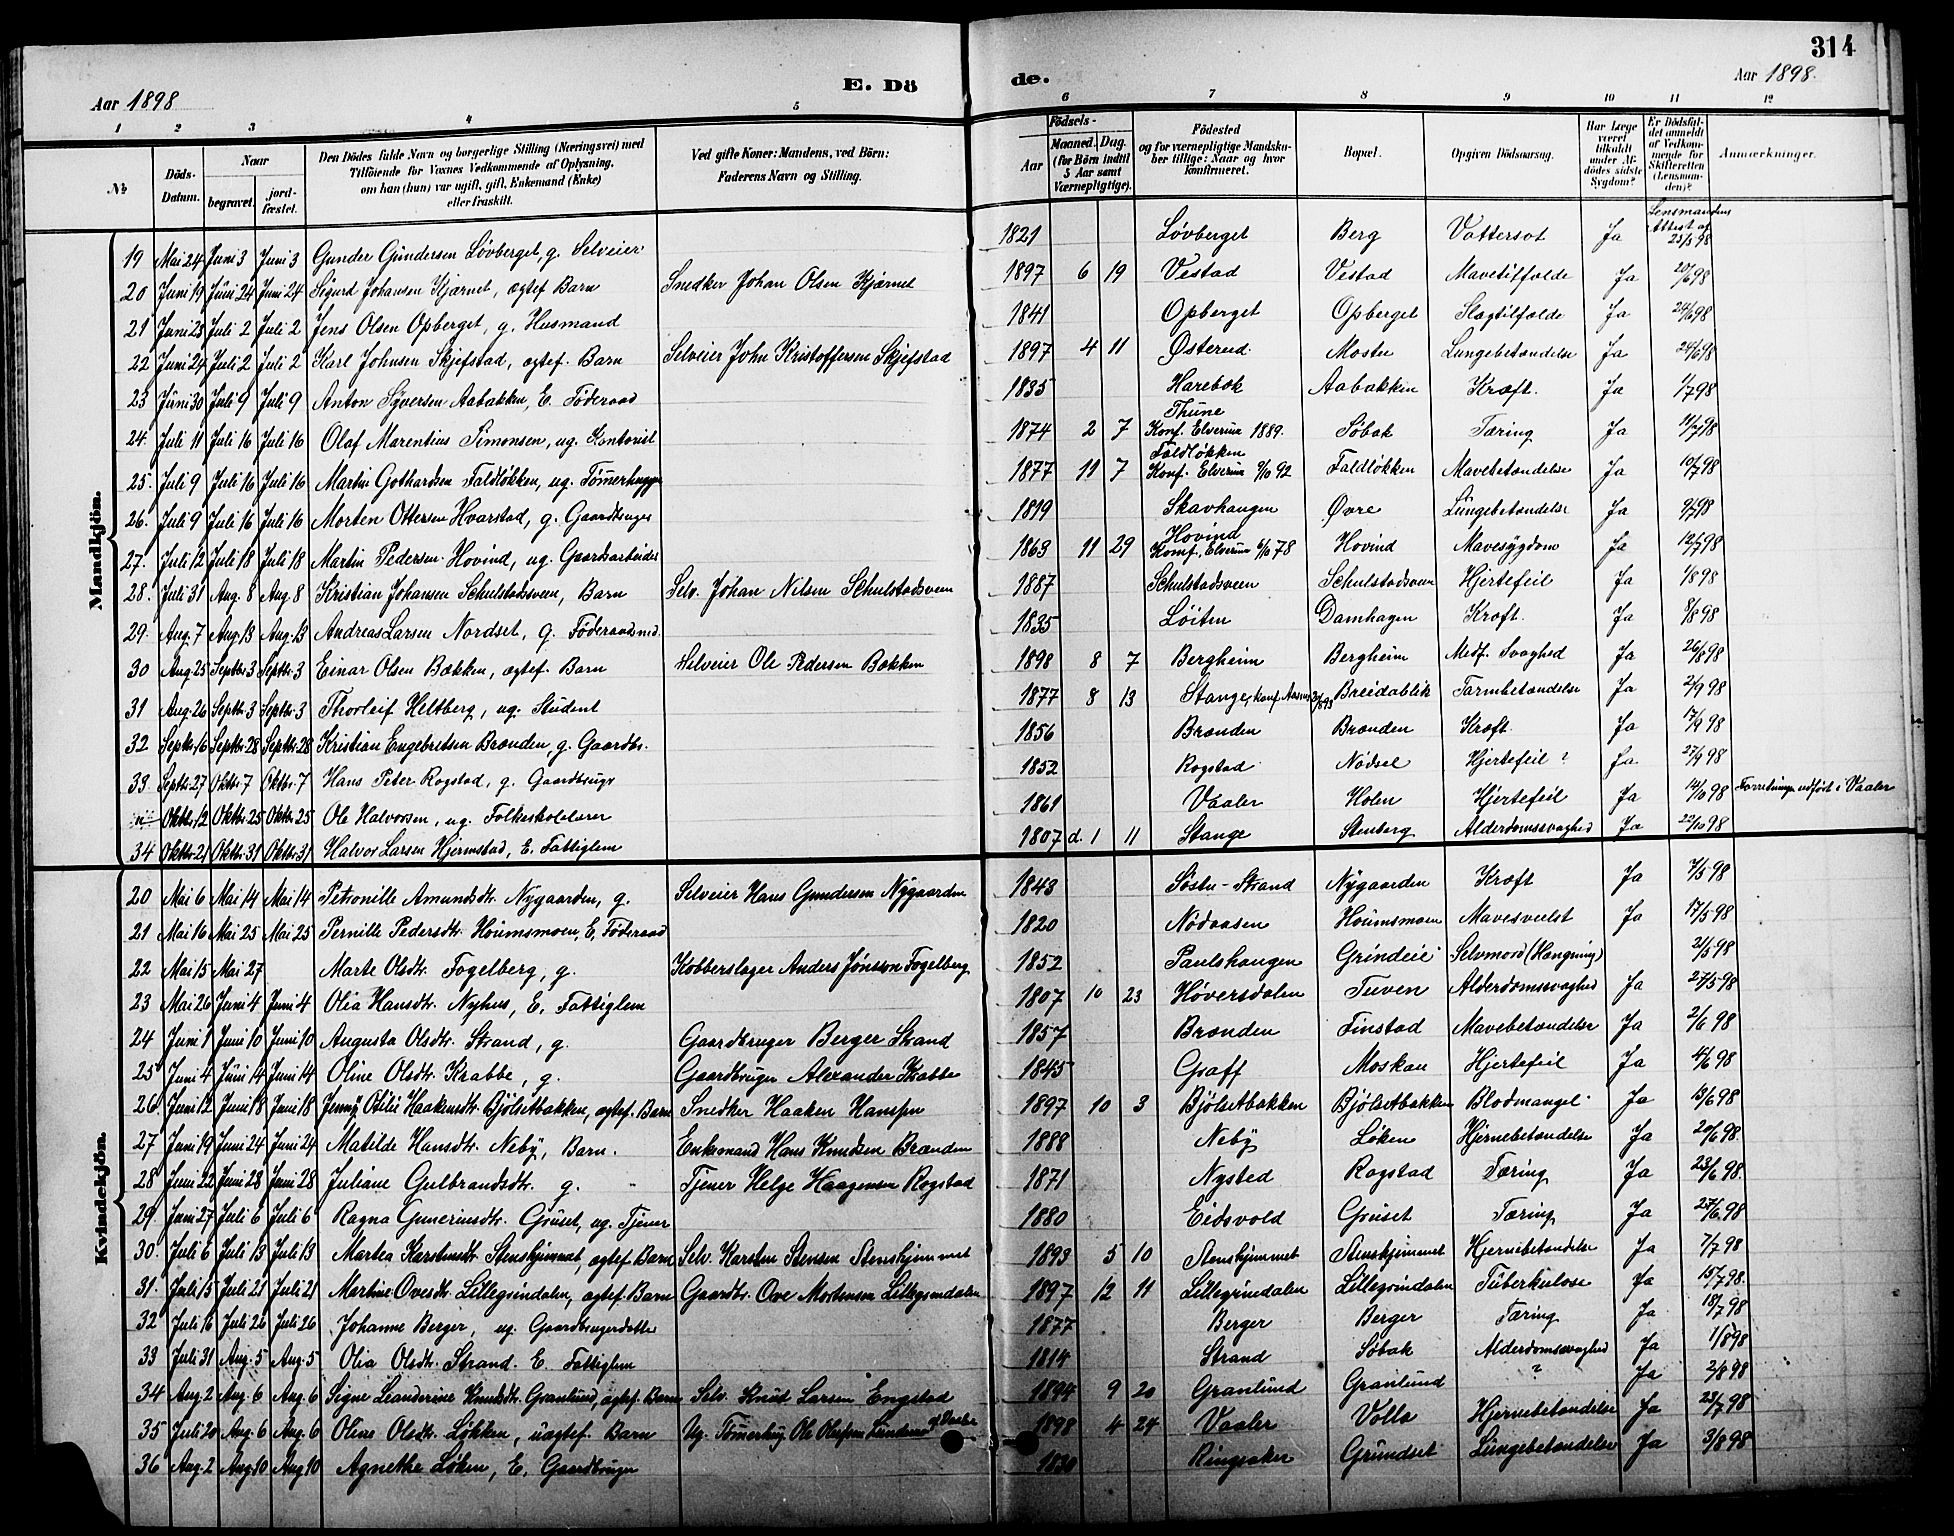 314
E. Döde.
Aar 1898
Aar 1898.
1 2 3 4 5 6 7 8 9 10 11 12
№ Döds-Datum. Naar begravet. jordfæstet. Den Dödes fulde Navn og borgerlige Stilling (Næringsvei) med Tilföiende for Voxnes Vedkommende af Oplysning, om han (hun) var ugift, gift, Enkemand (Enke) eller fraskilt. Ved gifte Koner: Mandens, ved Börn: Faderens Navn og Stilling. Födsels- Aar Maaned. Dag. (for Börn indtil 5 Aar samt Værnepligtige). Födested og for værnepligtige Mandskaber tillige: Naar og hvor konfirmeret. Bopæl. Opgiven Dödsaarsag. Har Læge været tilkaldt under Afdödes sidste Sygdom? Er Dödsfaldet anmeldt af Vedkommende for Skifteretten (Lensmanden)? Anmærkninger.
Mandkjön.
19 Mai 24 Juni 3 Juni 3 Gunder Gundersen Lövberget, g. Selveier 1821 Løvberget Berg Vattersot Ja Lensmandens Attest af 25/5 98
20 Juni 19 Juni 24 Juni 24 Sigurd Johansen Kjærnet, ægtef. Barn Snedker Johan Olsen Kjærnet 1897 6 19 Vestad Vestad Mavetilfælde Ja 20/6 98
21 Juni 23 Juli 2 Juli 2 Jens Olsen Opberget, g. Husmand 1841 Opberget Opberget Slagtilfælde Ja 24/6 98
22 Juni 24 Juli 2 Juli 2 Karl Johnsen Skjefstad, ægtef. Barn Selveier John Kristoffersen Skjefstad 1897 4 11 Østerud Mostu Lungebetændelse Ja 24/6 98
23 Juni 30 Juli 9 Juli 9 Anton Syversen Aabakken, E. Föderaad 1835 Harebæk Aabakken Kræft. Ja 1/7 98
24. Juli 11 Juli 16 Juli 16 Olaf Marentius Simonsen, ug. Kontorist 1874 2 7 Thune Konf. Elverum 1889. Søbak Tæring Ja 11/7 98
25. Juli 9 Juli 16 Juli 16 Martin Gothardsen Faldløkken, ug. Tømmerhugger 1877 11 7 Faldløkken Konf. Elverum 9/10 92 Faldløkken Mavebetændelse Ja 10/7 98
26. Juli 9 Juli 16 Juli 16 Morten Ottersen Hvarstad, g. Gaardbruger 1819 Skavhaugen Øvre Lungebetændelse Ja 9/7 98
27. Juli 12 Juli 18 Juli 18 Martin Pedersen Hovind, ug. Gaardsarbeider 1863 11 29 Hovind Konf. Elverum 6/10 78 Hovind Mavesygdom Ja 12/7 98
28. Juli 31 Aug. 8 Aug 8 Kristian Johansen Schulstadsveen, Barn Selv. Johan Nilsen Schulstadsveen 1887 Schulstadsveen Schulstadsveen Hjertefeil Ja 1/8 98
29. Aug. 7 Aug. 13 Aug. 13 Andreas Larsen Nordset, g. Föderaadsmd. 1835 Løiten Damhagen Kræft. Ja 8/8 98
30 Aug. 25 Septbr. 3 Septbr. 3 Einar Olsen Bækken, ægtef. Barn Selveier Ole Pedersen Bækken 1898 8 7 Bergheim Bergheim Medf. Svaghed Ja 26/8 98
31 Aug. 26 Septbr. 3 Septbr. 3 Thorleif Heltberg, ug. Student 1877 8 13 Stange, konf. Breidablik Tarmbetændelse Ja 2/9 98
32 Septbr. 16 Septbr. 28 Septbr. 28 Kristian Engebretsen Brænden, g. Gaardbr. 1856 Brænden Brænden Kræft. Ja 17/9 98
33 Septbr. 27 Oktbr. 7 Oktbr. 7 Hans Peter Rogstad, g. Gaardbruger 1852 Rogstad Nødsel Hjertefeil ? Ja 27/9 98
" Oktbr. 12 Oktbr. 25 Oktbr. 25 Ole Halvorsen, ug. Folkeskolelærer 1861 Vaaler Holen Hjertefeil Ja 14/10 98 Forretningen udført i Vaaler
34 Oktbr. 21 Oktbr. 31 Oktbr. 31 Halvor Larsen Hjermstad, E. Fattiglem 1807 d. 1 11 Stange Stenberg Alderdomssvaghed Ja 22/10 98
Kvindekjön.
20 Mai 6 Mai 14 Mai 14 Petronille Amundsdtr. Nygaarden, g. Selveier Hans Gundersen Nygaarden 1843 Søstu-Strand Nygaarden Kræft Ja 7/5 98
21 Mai 16 Mai 25 Mai 25 Pernille Pedersdtr. Houmsmoen, E. Föderaad 1820 Nødaasen Houmsmoen Mavesvulst Ja 17/5 98
22 Mai 15 Mai 27 Marte Olsdtr. Fogelberg, g. Kobberslager Anders Jönsson Fogelberg 1852 Paulshaugen Grindeie Selvmord (Hængning) 21/5 98
23 Mai 26 Juni 4 Juni 4 Olia Hansdtr. Nyhus, E. Fattiglem 1807 10 23 Høversdalen Tuven Alderdomssvaghed Ja 27/5 98
24 Juni 1 Juni 10 Juni 10 Augusta Olsdtr. Strand, g. Gaardbruger Berger Strand 1857 Brænden Finstad Mavebetændelse Ja 2/6 98
25 Juni 4 Juni 14 Juni 14 Oline Olsdtr. Krabbe, g. Gaardbruger Alexander Krabbe 1845 Graff Moskau Hjertefeil Ja 4/6 98
26 Juni 12 Juni 18 Juni 18 Jenny Otilie Haakensdtr. Bjölsetbakken, ægtef. Barn Snedker Haaken Hanssen 1897 10 3 Bjölsetbakken Bjölsetbakken Blodmangel Ja 13/6 98
27 Juni 19 Juni 24 Juni 24 Matilde Hansdtr. Neby, Barn. Enkemand Hans Knudsen Brænden 1888 Neby Løken Hjernebetændelse Ja 20/6 98.
28 Juni 22 Juni 28 Juni 28 Juliane Gulbrandsdtr. g. Tjener Helge Haagensen Rogstad 1871 Nysted Rogstad Tæring Ja 23/6 98.
29. Juni 27 Juli 6 Juli 6 Ragna Guneriusdtr. Gruset, ug. Tjener 1880 Eidsvold Gruset Tæring Ja 27/6 98
30. Juli 6 Juli 13 Juli 13 Martea Karstensdtr. Stenshjemmet, ægtef. Barn Selv. Karsten Stensen Stenshjemmet 1893 5 10 Stenshjemmet Stenshjemmet Hjernebetændelse Ja 7/7 98
31. Juli 15 Juli 21 Juli 21 Martine Ovesdtr. Lillegrindalen, ægtef. Barn Gaardbr. Ove Mortensen Lillegrindalen 1897 12 11 Lillegrindalen Lillegrindalen Tuberkulose Ja 15/7 98.
32 Juli 16 Juli 26 Juli 26 Johanne Berger, ug. Gaardbrugerdatter 1877 Berger Berger Tæring Ja 18/7 98
33 Juli 31 Aug. 5 Aug. 5 Olia Olsdtr. Strand. E. Fattiglem 1814 Strand Søbak Alderdomssvaghed Ja 1/8 98
34 Aug. 2 Aug. 6 Aug. 6 Signe Leanderine Knudsdtr. Granlund, ægtef. Barn Selv. Knud Larsen Engstad 1894 9 20 Granlund Granlund ? Ja 2/8 98
35 Juli 20 Aug. 6 Aug. 6 Oline Olsdtr. Løkken, uægtef. Barn Ug. Tømmerhug. Ole Olufsen af Vaaler 1898 4 24 Vaaler Volla Hjernebetændelse Ja 23/7 98
36 Aug. 2 Aug. 10 Aug 10 Agnethe Løken, E. Gaardbruger 1830 Ringsaker Grundset Lungebetændelse Ja 3/8 98